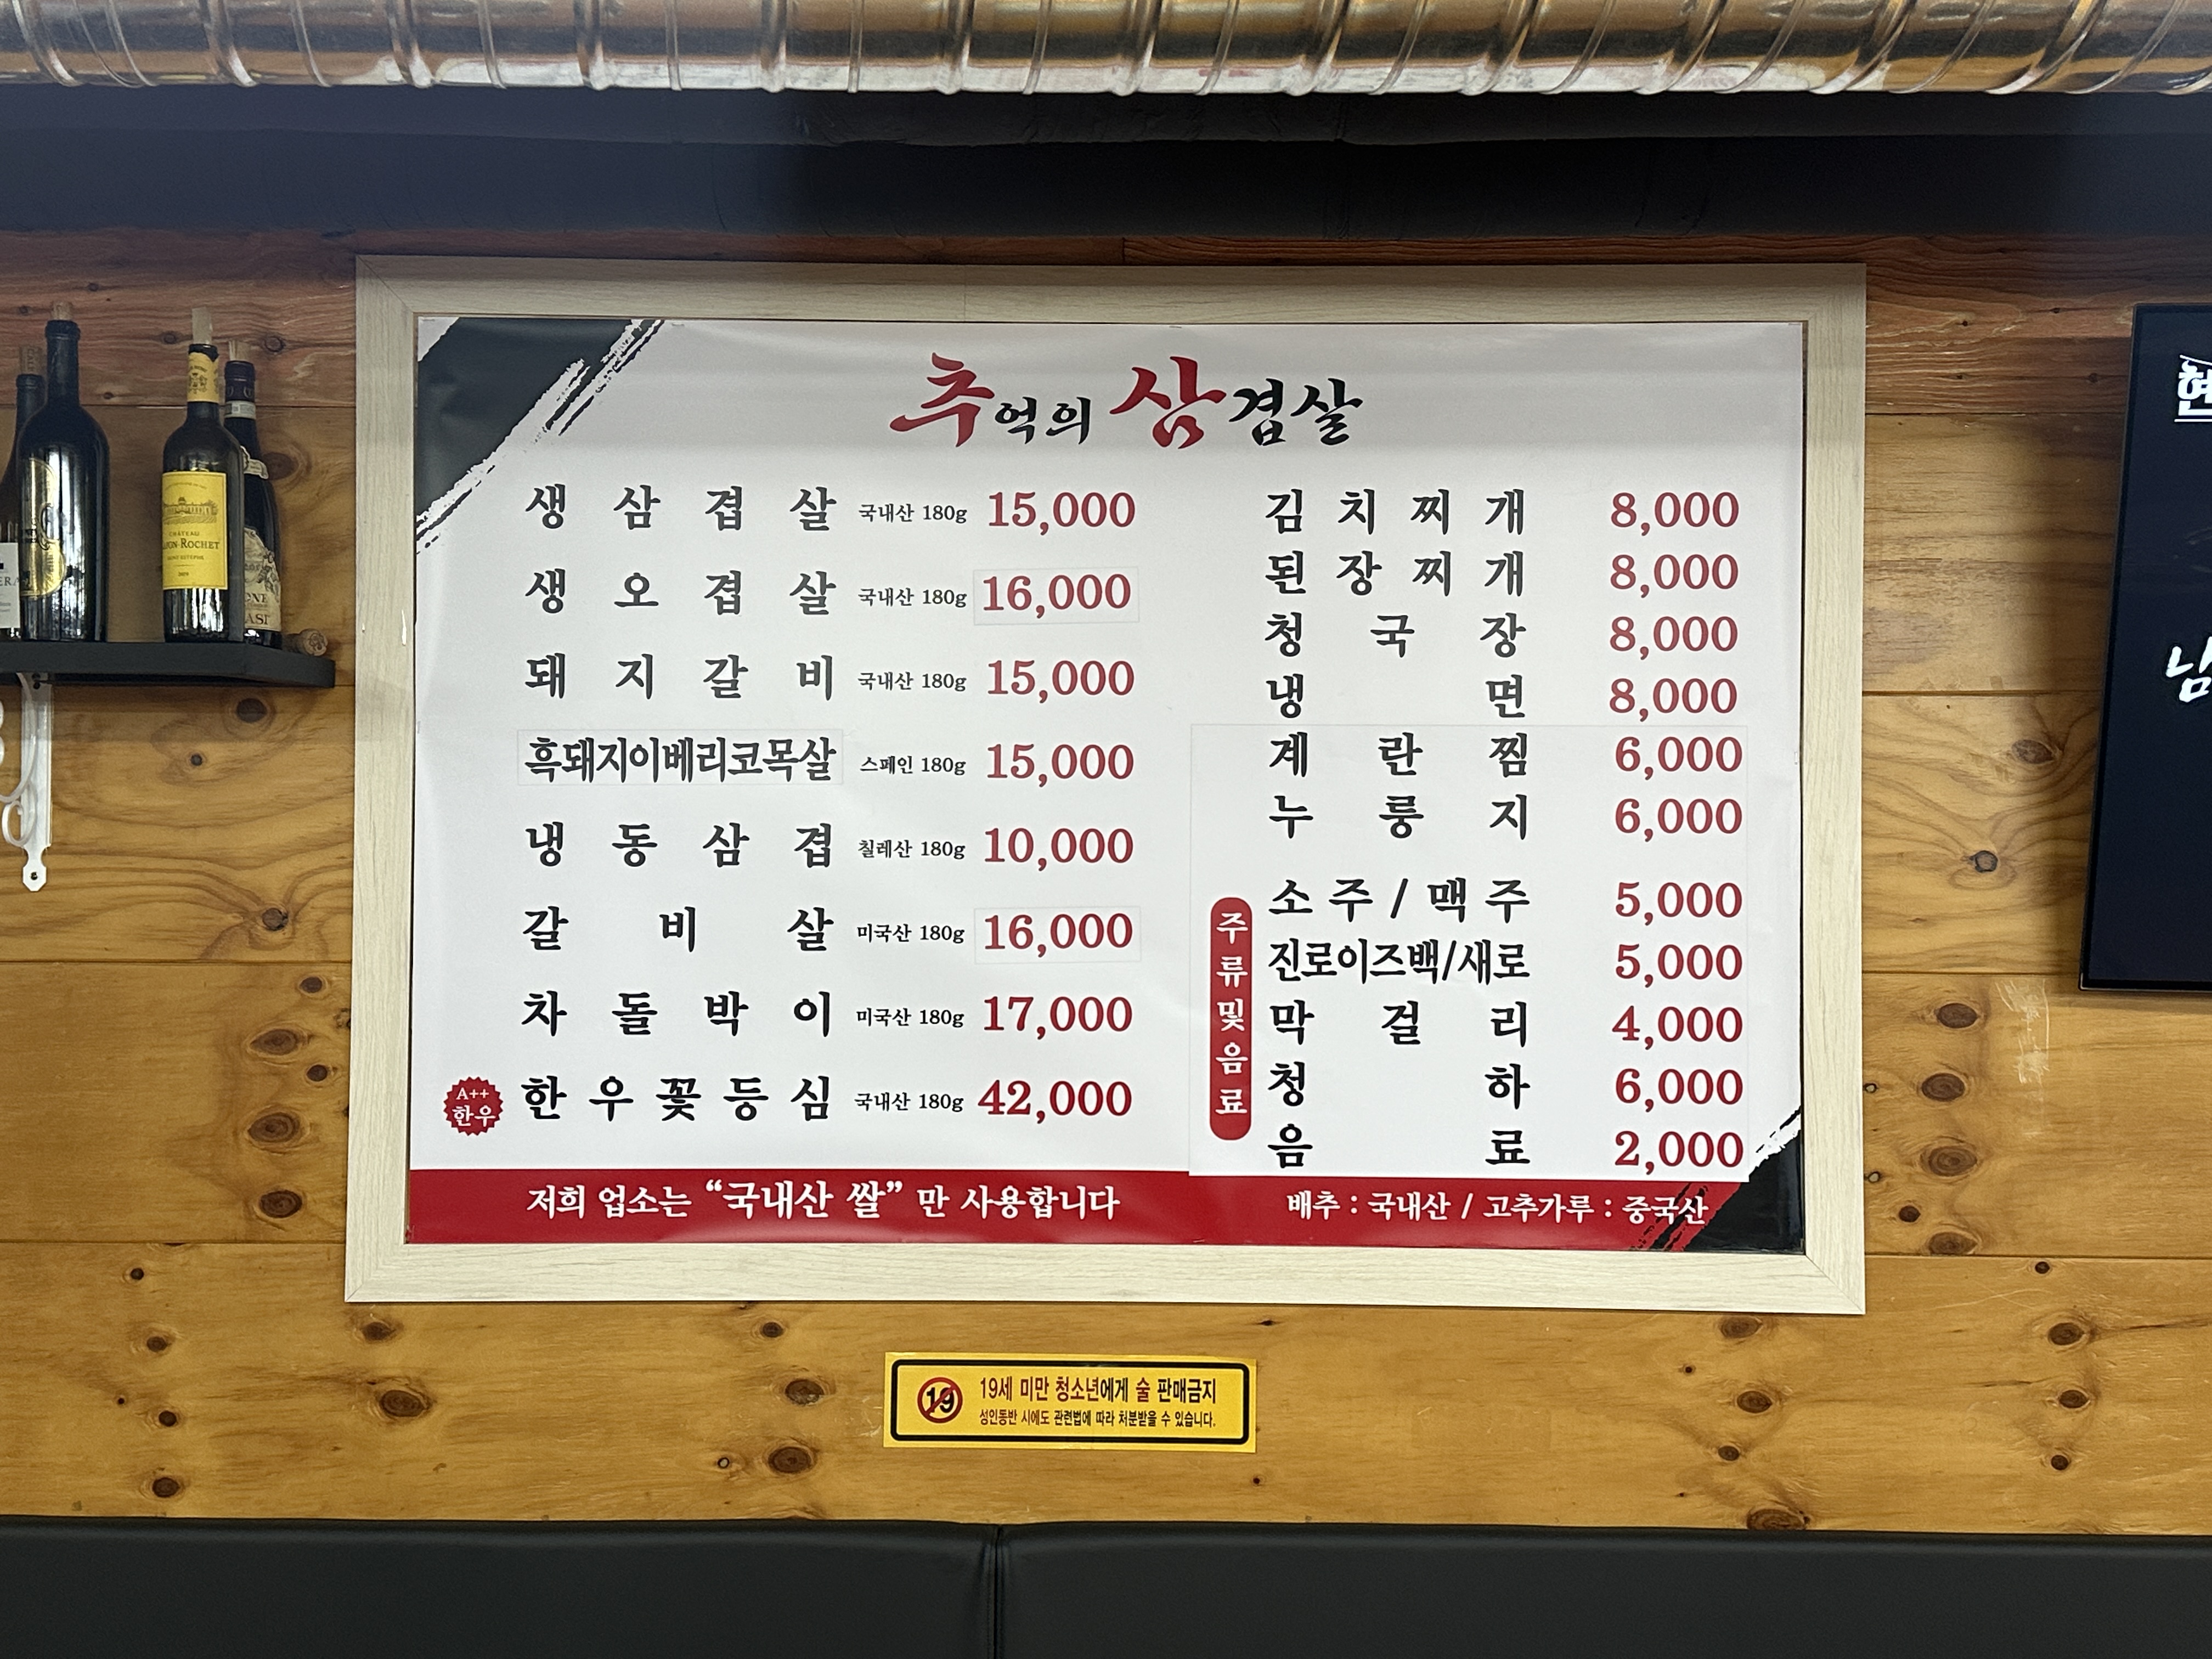 추억의 삼겹살
생삼겹살 국내산 180g 15,000
생오겹살 국내산 180g 16,000
돼지갈비 국내산 180g 15,000
흑돼지이베리코목살 스페인 180g 15,000
냉동삼겹 칠레산 180g 10,000
갈비살 미국산 180g 16,000
차돌박이 미국산 180g 17,000
A++
한우
한우꽃등심 국내산 180g 42,000
김치찌개 8,000
된장찌개 8,000
청국장 8,000
냉면 8,000
계란찜 6,000
누룽지 6,000
주류및음료
소주/맥주 5,000
진로이즈백/새로 5,000
막걸리 4,000
청하 6,000
음료 2,000
저희 업소는 “국내산 쌀” 만 사용합니다
배추 : 국내산 / 고추가루 : 중국산
19
19세 미만 청소년에게 술 판매금지
성인동반 시에도 관련법에 따라 처분받을 수 있습니다.
CHÂTEAU
ROCHET
현
남